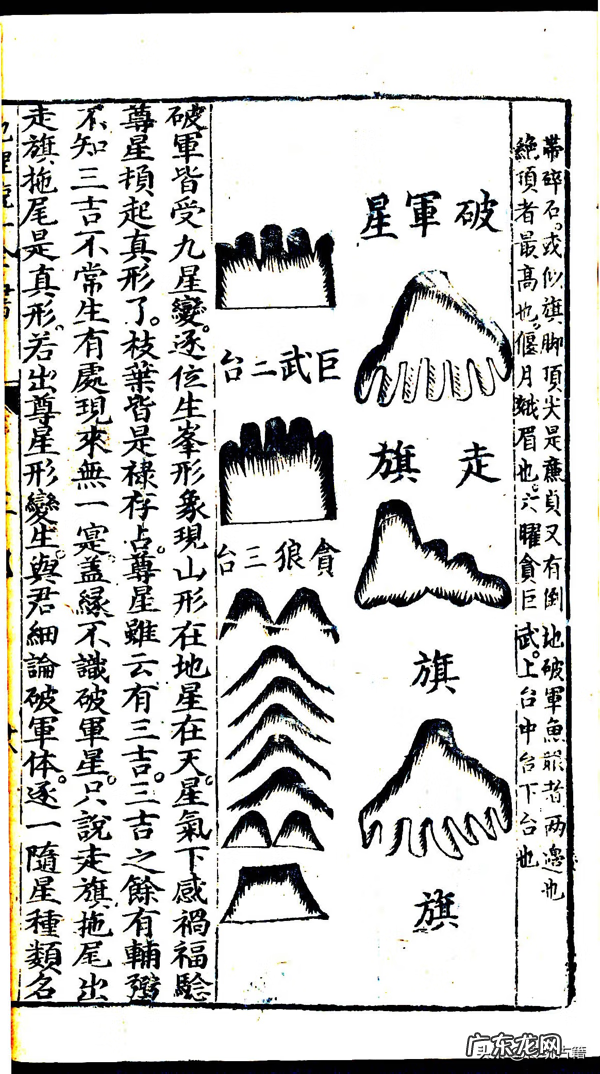 帶碎石。或似旗脚頂尖是廉貞又有倒地破軍魚龍者两邊也
絶頂者最高也。偃月蛾眉也。六曜貪巨武。上台中台下台也
破軍星
走旗
旗
旗
巨武二台
貪狼三台
破軍皆受九星變。逐位生峯形象現山形在地星在天。星氣下感禍福驗
尊星頓起真形了。枝葉皆是祿存占。尊星雖云有三吉。三吉之餘有輔弼
不知三吉不常生有處現來無一寔。蓋緣不識破軍星。只說走旗拖尾出
走旗拖尾是真形。若出尊星形變生。與君細論破軍体。逐一隨星種類名
广东龙网